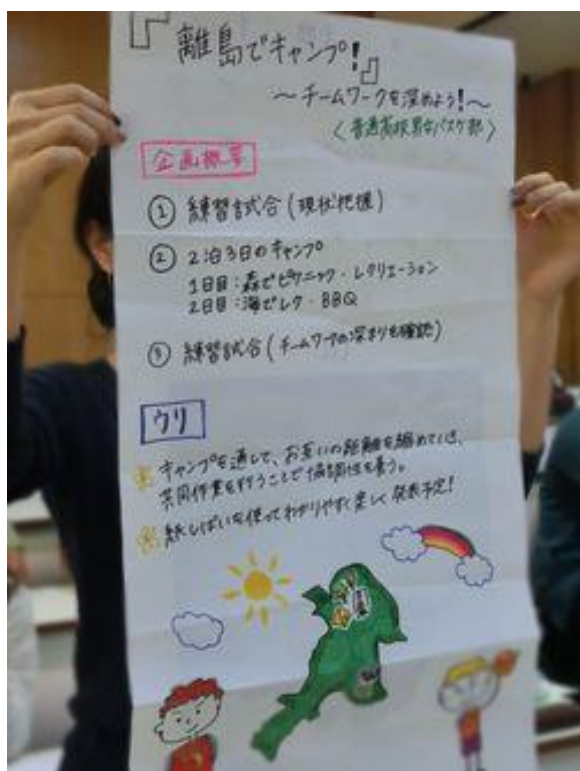 『離島でキャンプ!』
〜チームワークを深めよう!〜
〈普通高校男女バスケ部〉
企画概要
① 練習試合(現状把握)
② 2泊3日のキャンプ
1日目:森でピクニック・レクリエーション
2日目:海でレク・BBQ
③ 練習試合(チームワークの深まりを確認)
ウリ
キャンプを通して、お互いの距離を縮めていき、
共同作業を行うことで協調性を養う。
紙しばいを使ってわかりやすく楽しく発表予定!